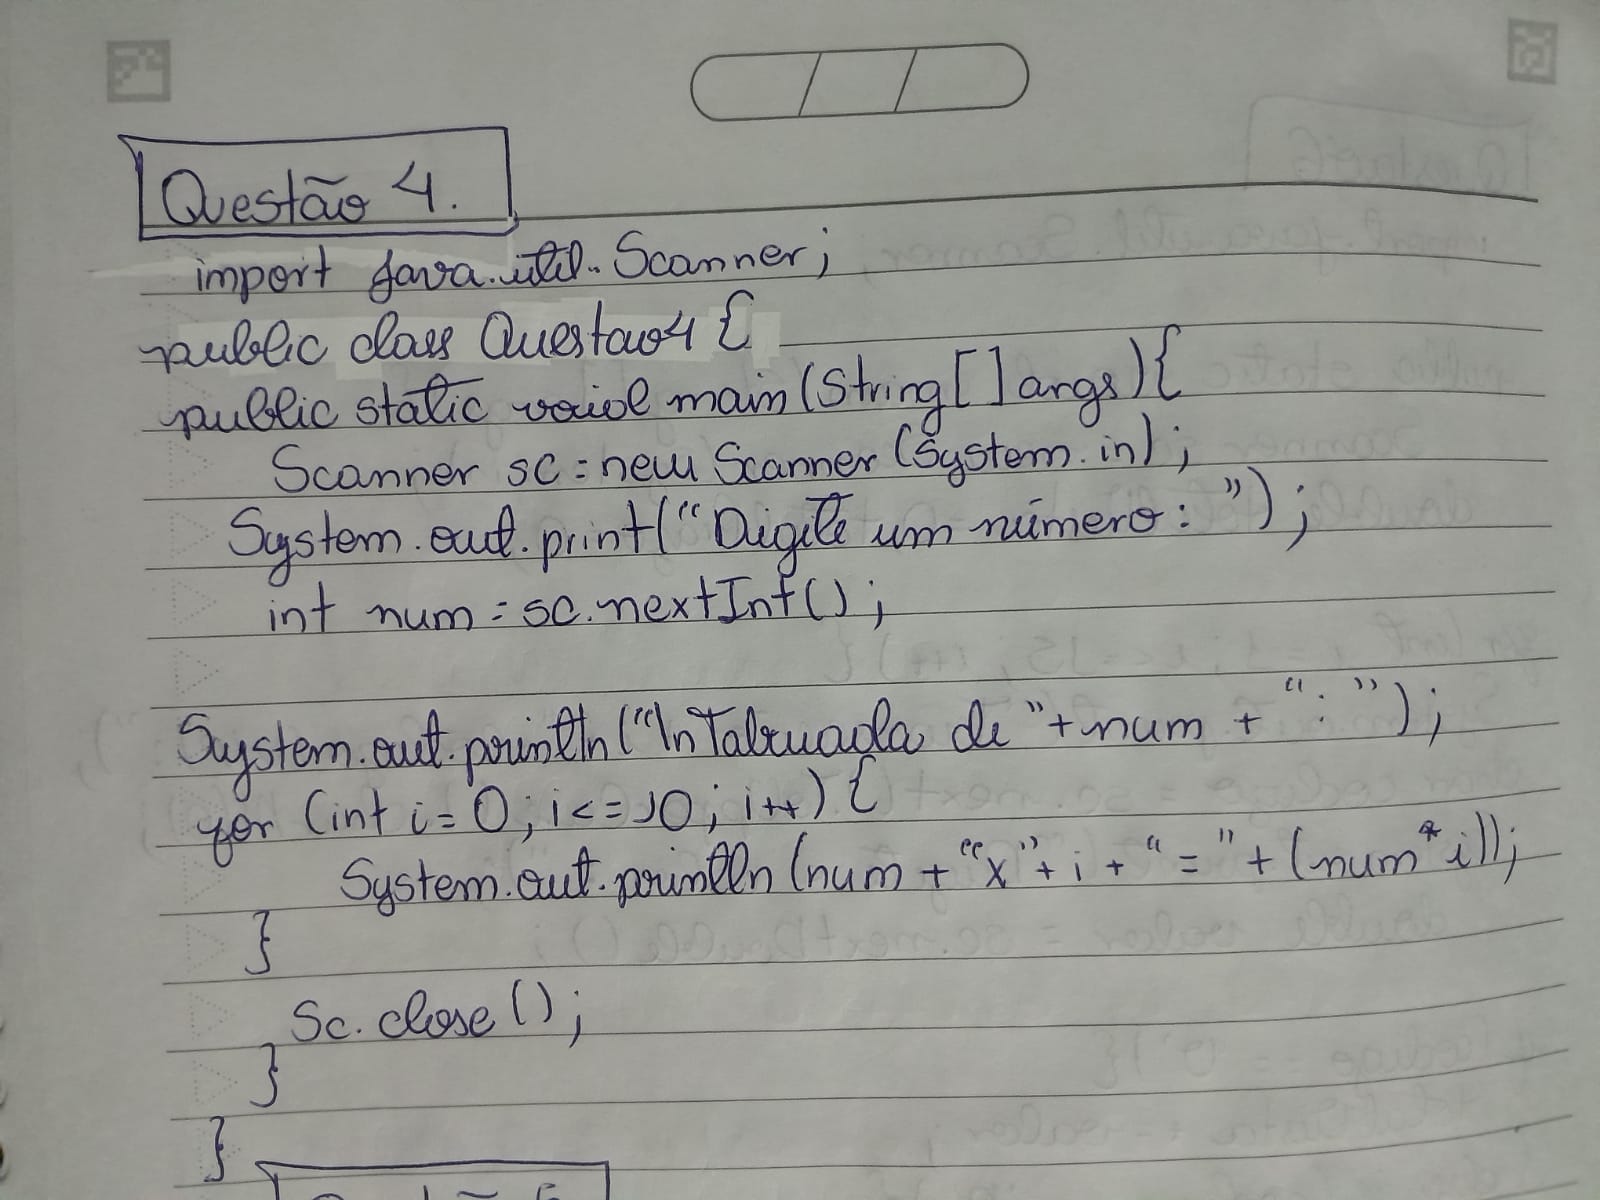 Questão 4.
import java.util.Scanner;
public class Questao4 {
public static void main(String[] args){
Scanner sc = new Scanner(System.in);
System.out.print("Digite um número: ");
int num = sc.nextInt();
System.out.println("\nTabuada de "+num + ":");
for (int i=0; i<=10; i++) {
System.out.println(num + "x"+ i + "=" + (num*i));
}
Sc.close();
}
}